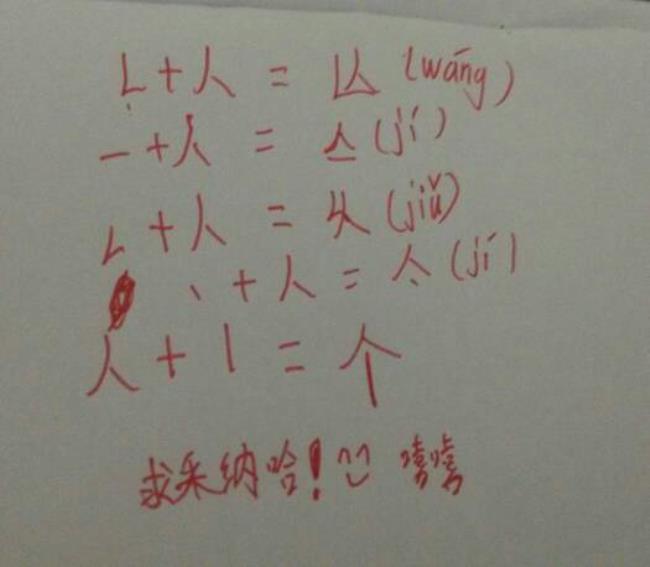 𠃊+人 = 亾 (wáng)
一+人 = 亼 (jí)
𠃊+人 = 乆 (jiǔ)
丶+人 = 亽 (jí)
人+丨= 个
求采纳哈!嘻嘻